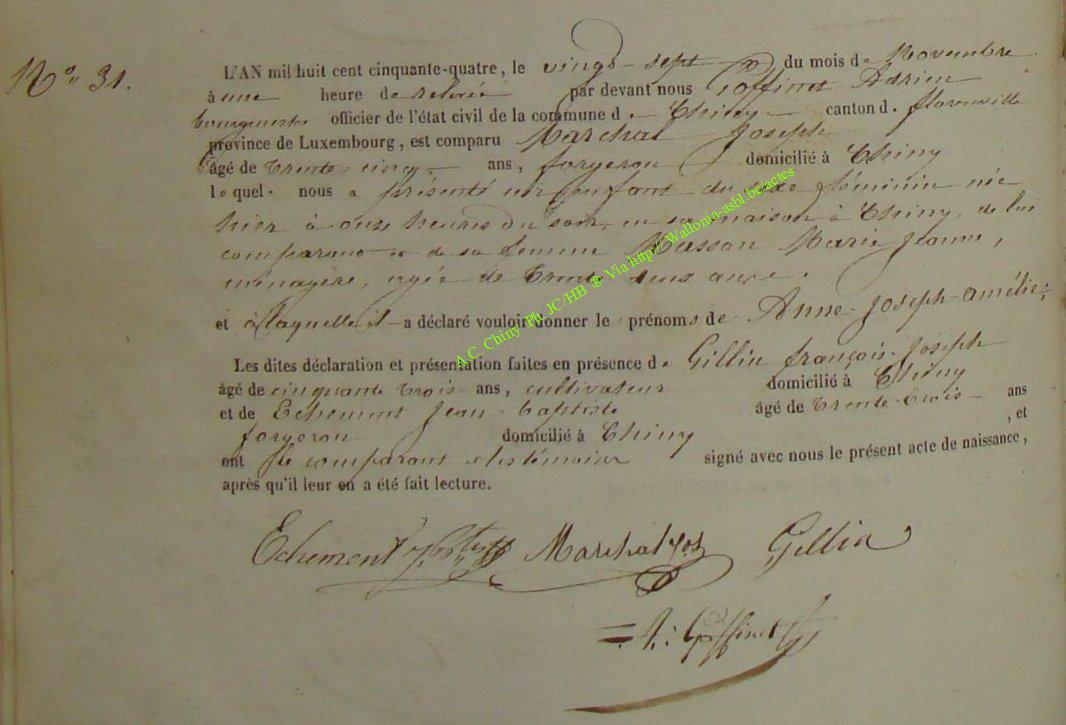 N° 31.
L'AN mil huit cent cinquante-quatre, le vingt-sept du mois de Novembre
à une heure de relevée par devant nous Goffinet Adrien
Bourgmestre officier de l'état civil de la commune d. Chiny canton d. florenville
province de Luxembourg, est comparu Marchal Joseph
âgé de trente-cinq ans, forgeron domicilié à Chiny
lequel nous a présenté un enfant du sexe féminin née
hier à onze heures du soir, en sa maison à Chiny, de lui
comparant et de sa femme Masson Marie Jeanne,
ménagère, agée de trente deux ans.
et à laquelle il a déclaré vouloir donner le prénoms de Anne-Joseph-amélie.;
Les dites déclaration et présentation faites en présence de Gillin françois-Joseph
âgé de cinquante trois ans, cultivateur domicilié à Chiny
et de Echement Jean-baptiste âgé de trente-trois ans
forgeron domicilié à Chiny , et
ont le comparant et les témoins signé avec nous le présent acte de naissance,
après qu'il leur en a été fait lecture.
Echement Marchal Jos Gillin
A. Goffinet
A.C. Chiny Ph JC/HB ® Via http://Wallonia-asbl.be/actes